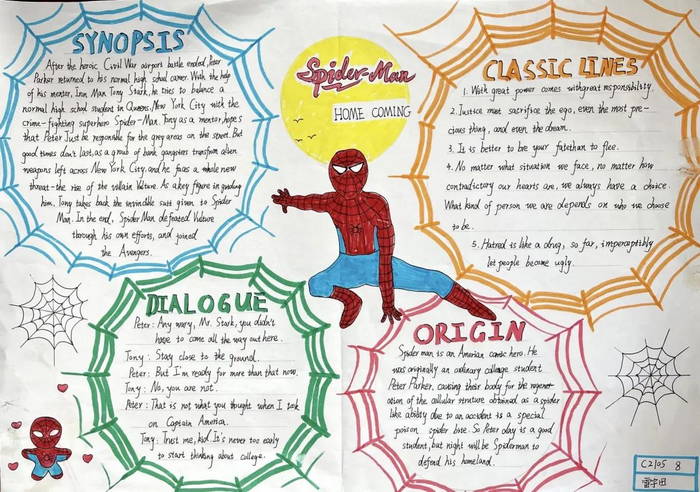 SYNOPSIS
After the heroic Civil War airport battle ended, Peter
Parker returned to his normal high school career. With the help
of his mentor, Iron Man Tony Stark, he tries to balance a
normal high school student in Queens, New York City with the
crime-fighting superhero Spider-Man. Tony as a mentor, hopes
that Peter Just be responsible for the grey areas on the street. But
good times don't last, as a group of bank gangsters transform alien
weapons left across New York City, and he faces a whole new
threat-the rise of the villain Vulture. As a key figure in guiding
him. Tony takes back the invincible suit given to Spider
Man. In the end, Spider Man defeated Vulture
through his own efforts, and joined
the Avengers.
Spider-Man
HOME COMING
CLASSIC LINES
1. With great power comes with great responsibility.
2. Justice must sacrifice the ego, even the most pre-
cious thing, and even the dream.
3. It is better to be your fate than to flee.
4. No matter what situation we face, no matter how
contradictory our hearts are, we always have a choice.
What kind of person we are depends on who we choose
to be.
5. Hatred is like a drug, so far, imperceptibly
let people become ugly.
DIALOGUE
Peter: Any mary, Mr. Stark, you didn't
have to come all the way out here.
Tony: Stay close to the ground.
Peter: But I'm ready for more than that now.
Tony: No, you are not.
Peter: That is not what you thought when I took
on Captain America.
Tony: Trust me, kid. It's never too early
to start thinking about college.
ORIGIN
Spider man is an Amerian comic hero. He
was originally an ordinary collenge student
Peter Parker, causing their body for the regener
ation of the cellular struture obtained as a spider
like ability due to an accident is a special
poison spider bite. So Peter day is a good
student, but night will be Spiderman to
defend his homeland.
C2105 8